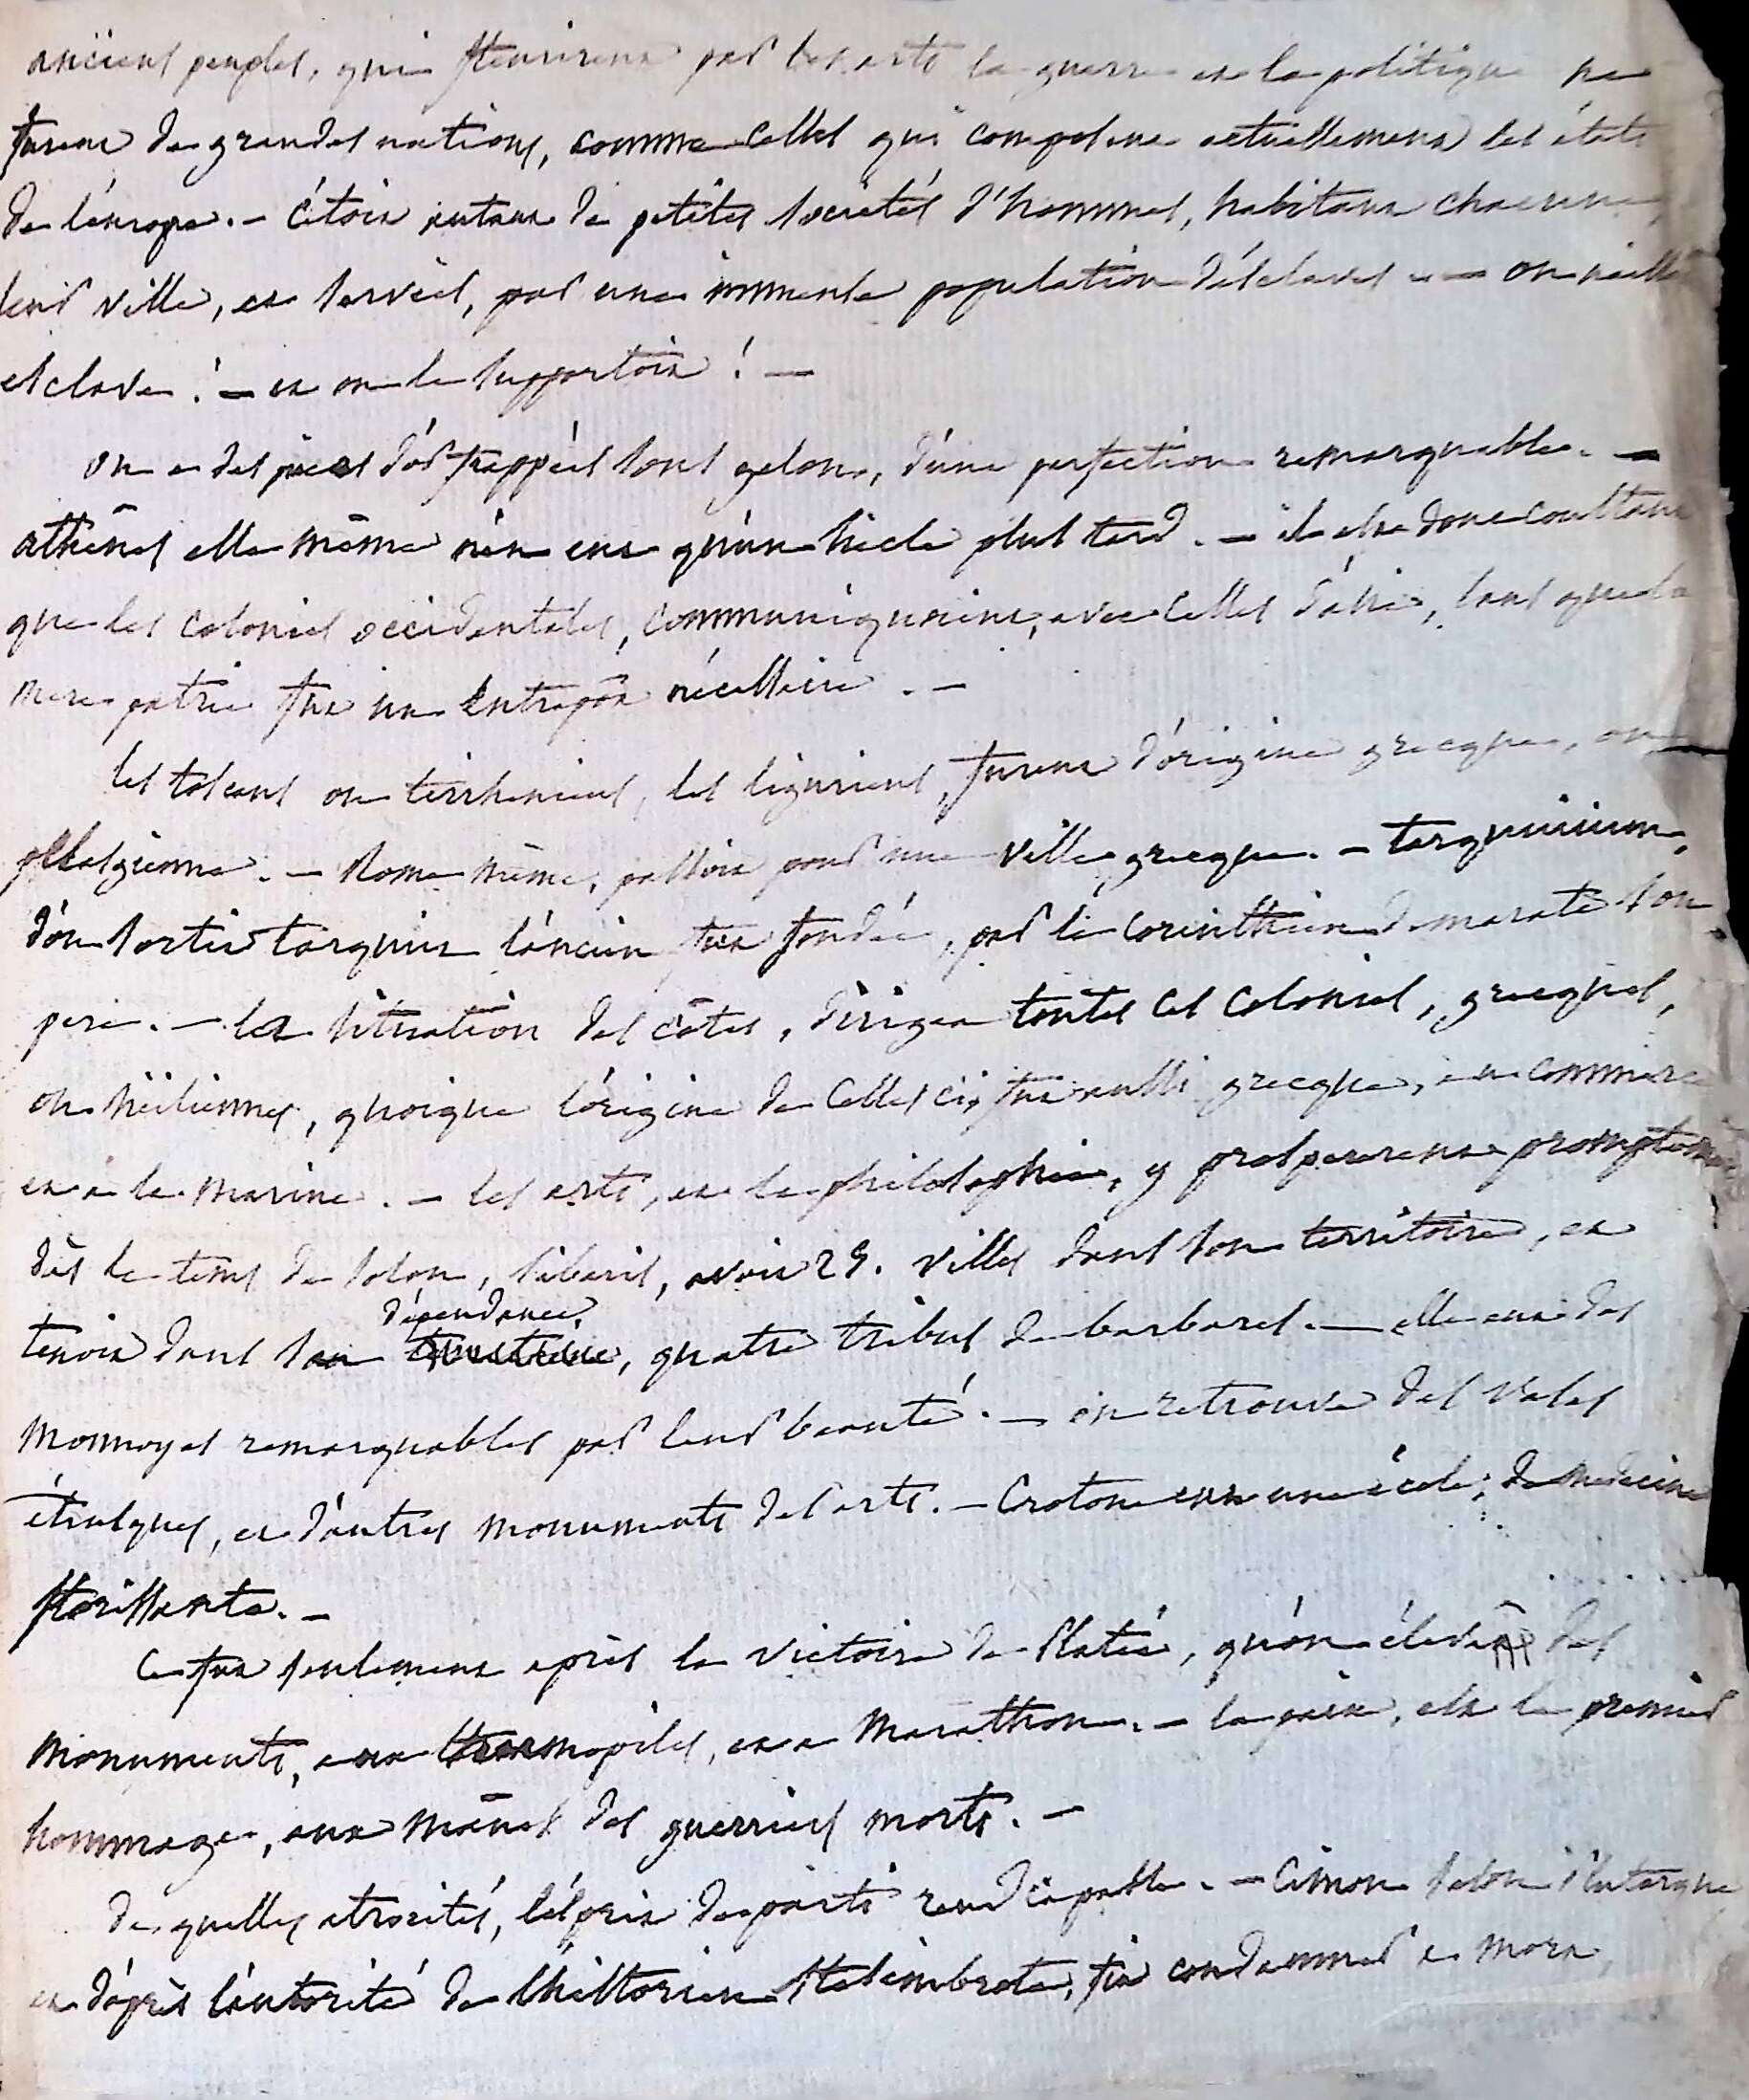 anciens peuples, qui fleurirent par les arts la guerre et la politique ne
furent de grandes nations, comme celles qui composent actuellement les états
de l'europe. - c'étoit autant de petites societés d'hommes, habitans chacune,
leur ville, et servies, par une immense population d'esclaves - on naissoit
esclave ! - et on le supportoit ! -
on a des pieces d'or frappées sous gelon, d'une perfection remarquable. -
athènes elle même n'en eut qu'un siecle plus tard. - il est donc constant
que les colonies occidentales, communiquoient, avec celles d'asie, sans que la
mere patrie fut un entrepôt nécessaire. -
les toscans ou tirrheniens, les liguriens, furent d'origine grecque, ou
pelasgienne. - Rome même, passoit pour une ville grecque. - tarquinium,
d'ou sortit tarquin l'ancien fut fondée, par le corinthien demarate son
pere. - la situation des côtes, dirigea toutes ces colonies, grecques,
ou siciliennes, quoique l'origine de celles ci, fut aussi grecque, au commerce
et a la marine. - les arts, et la philosophie, y prospererent promptement
dès le tems de solon, sibaris, avoit 25. villes dans son territoire, et
tenoit dans sa dépendance, quatre tribus de barbares. - elle eut des
monnoyes remarquables par leur beauté. - on retrouve des vases
étrusques, et d'autres monuments des arts. - Crotone eut une école, de medecine
florissante. -
Ce fut seulement après la victoire de Platée, qu'on éleva des
monuments, aux thermopiles, et a Marathon. - la paix, est le premier
hommage, aux mânes des guerriers morts. -
de quelles atrocités, l'esprit de parti rend capable. - Cimon selon Plutarque
et d'après l'autorité de l'historien Stesimbrote, fit condamner a mort,